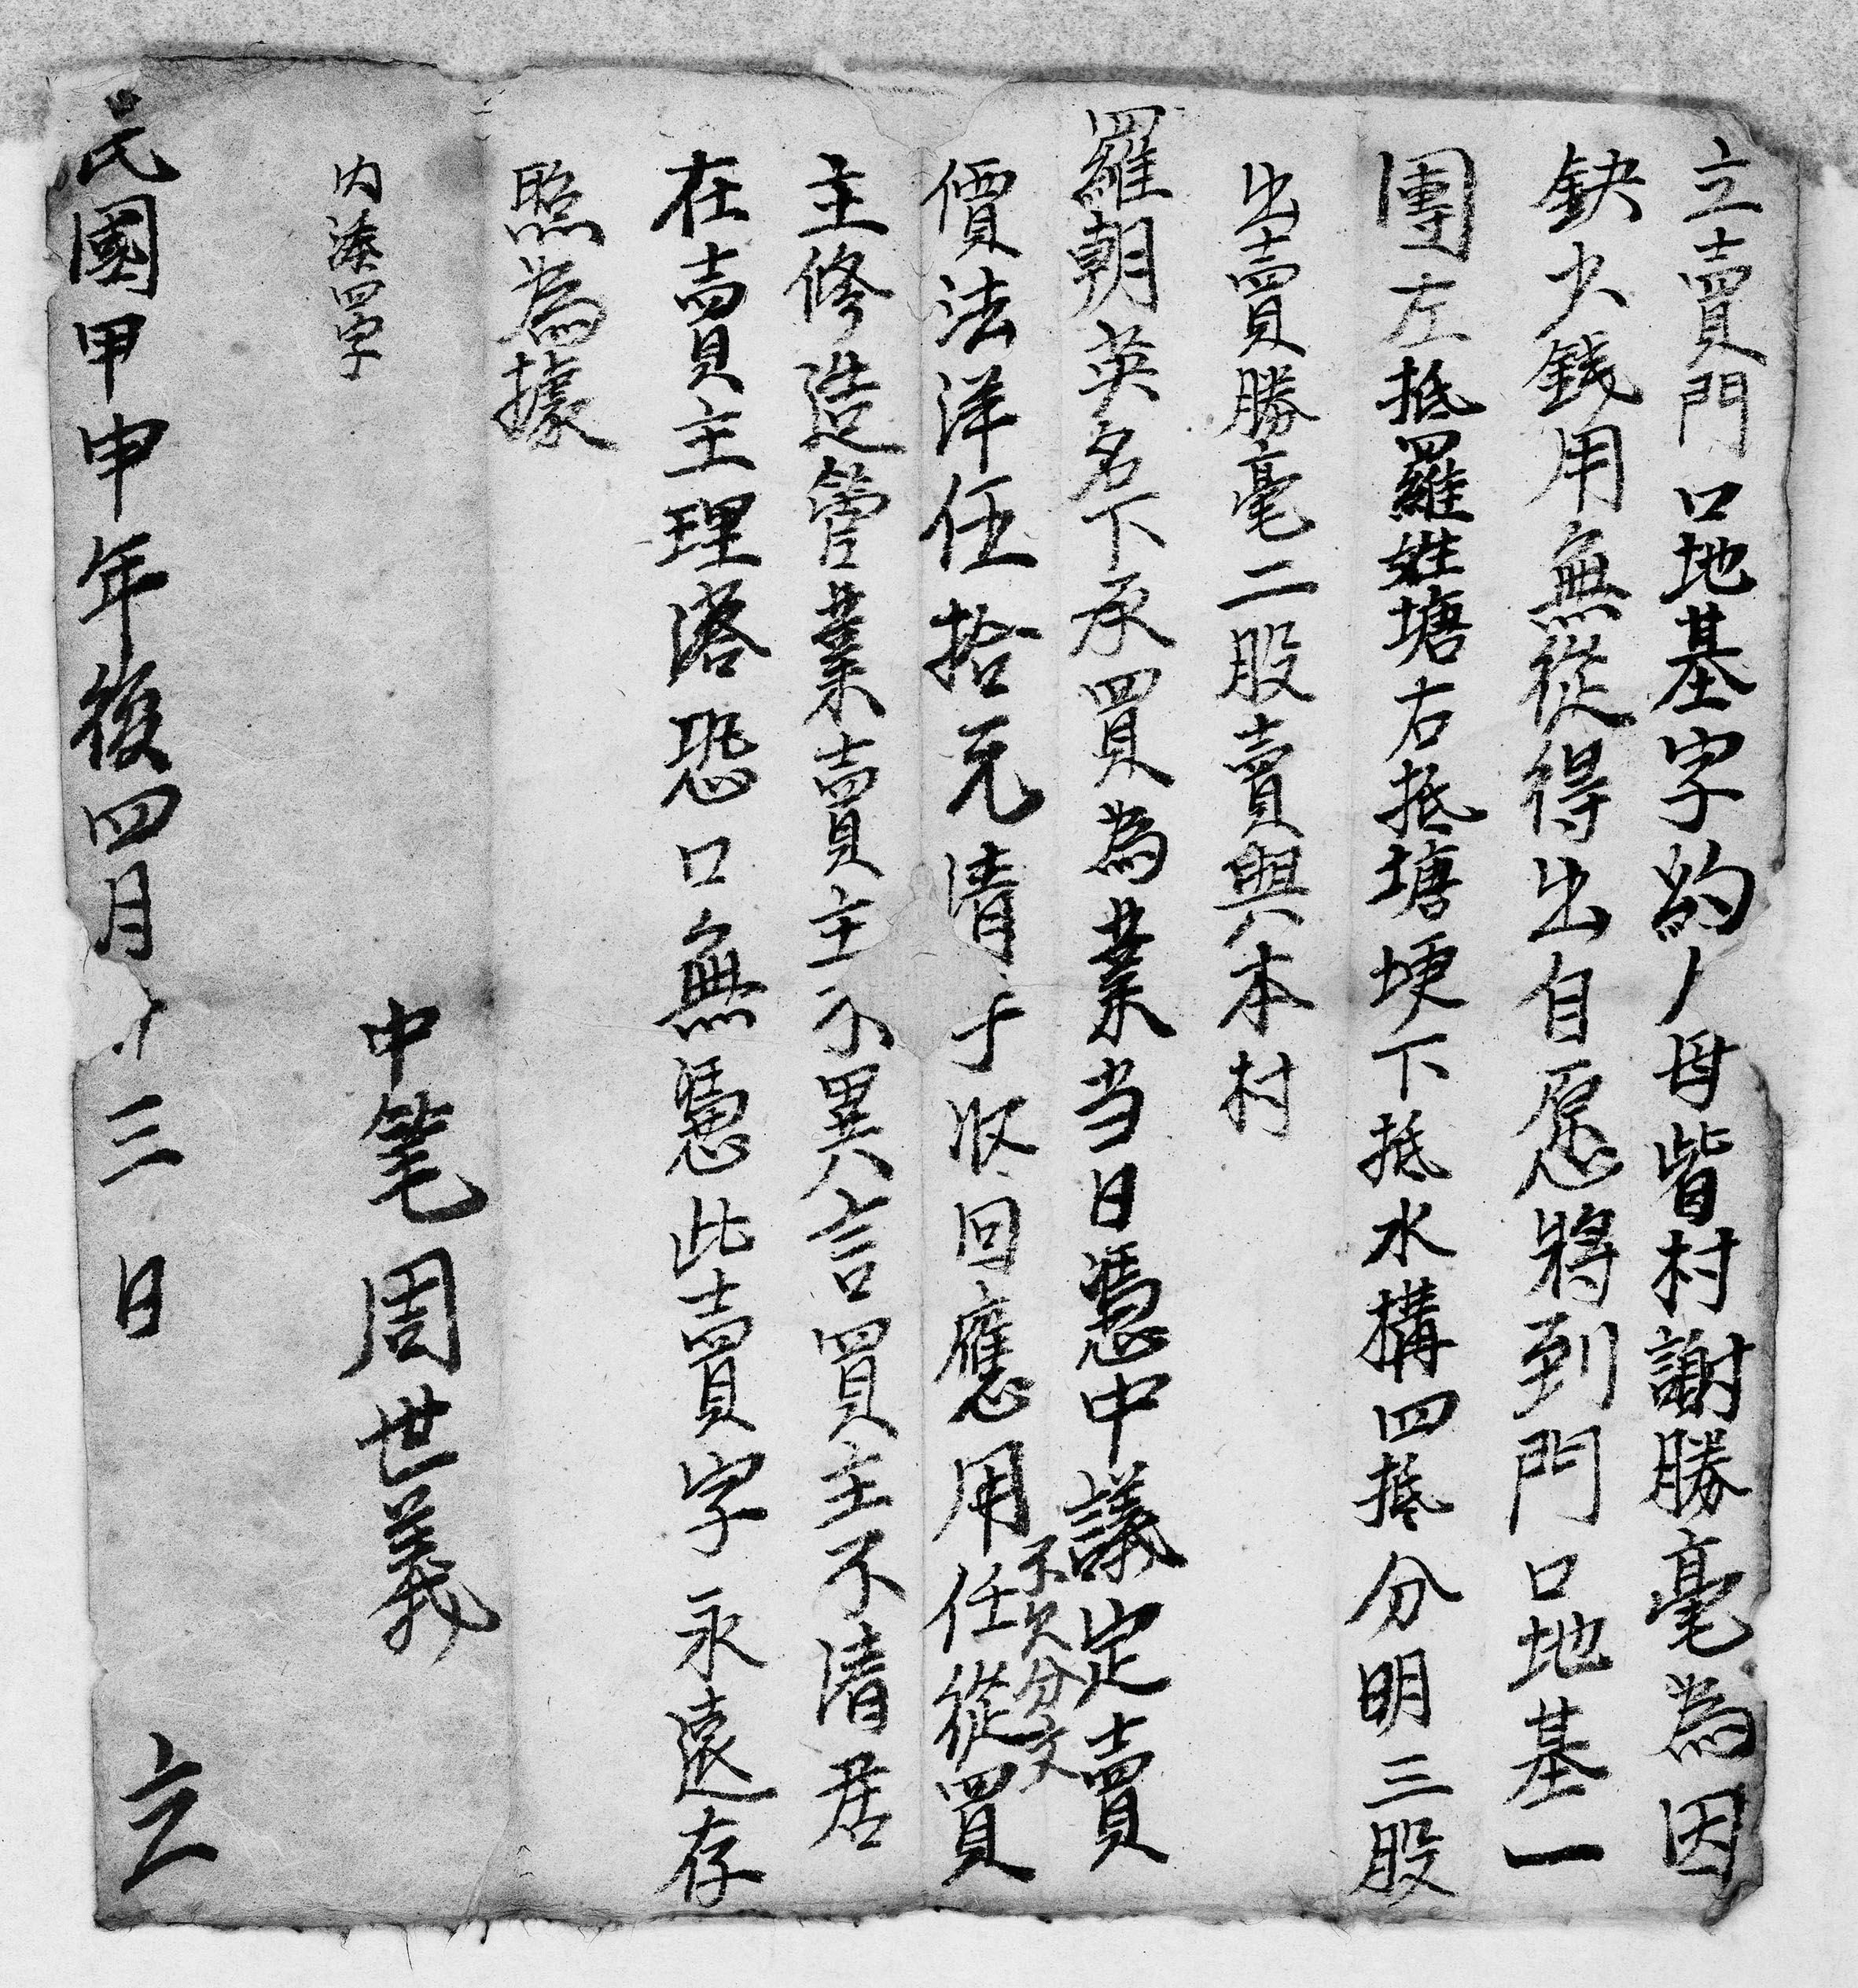 立賣門口地基字約人母背村謝勝毫為因
缺少錢用無從得出自愿將到門口地基一
團左抵羅姓塘右抵塘埂下抵水構四抵分明三股
出賣勝毫二股賣與本村
羅朝英名下承買為業当日憑中議定賣
價法洋伍拾元清手收回應用任從買
不欠分文
主修造管業賣主不異言買主不清居
在賣主理落恐口無憑此賣字永遠存
照為據
内添四字
中筆周世義
民國甲申年後四月十三日 立